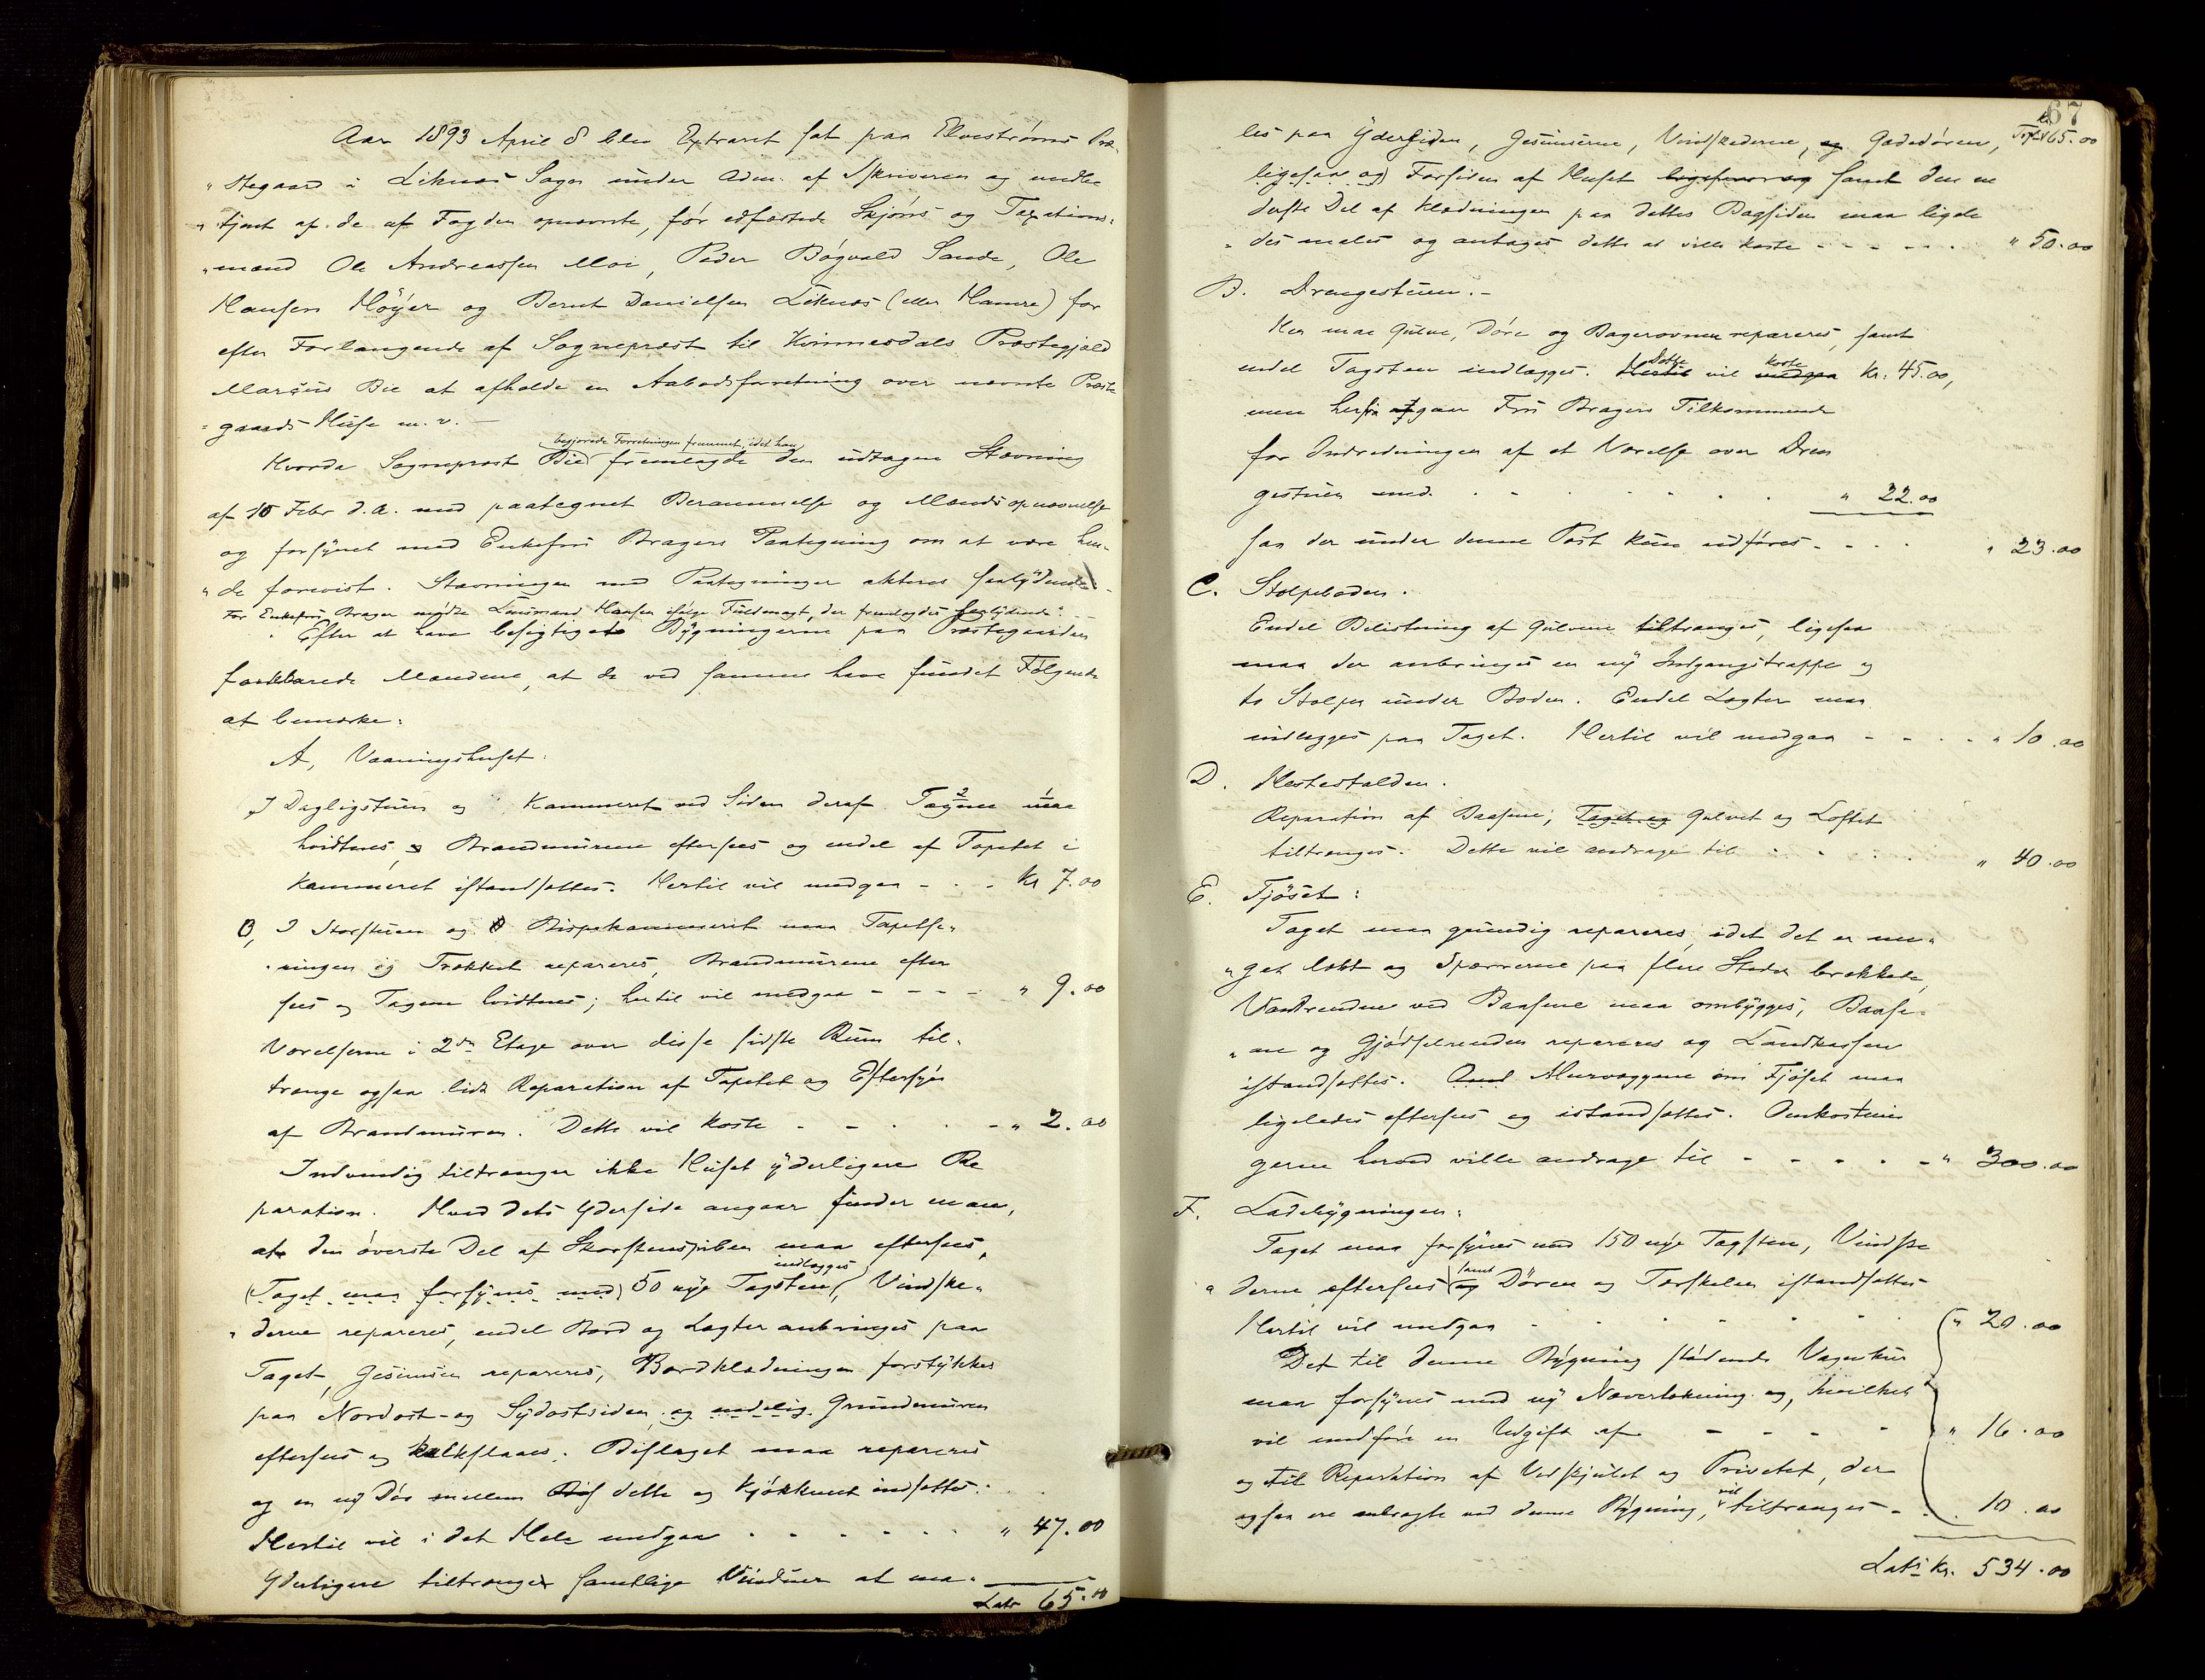 Aar 1893 April 8 blev Extraret sat paa Elvestrøms Præ-
"stegaard i Liknæs Sogn under Adm. af Skriveren og medbe
"tjent af de af Fogden opnævnte, før edfæstede Skjøns og Taxations-
"mænd Ole Andreassen Moi, Peder Bøgvald Sande, Ole
Hansen Høyer og Bernt Danielsen Liknæs (eller Hamre) for
efter Forlangende af Sogneprest til Kvinnesdals Præstegjeld
Marcus Bie at afholde en Aabodsforretning over nævnte Præste
"gaards Huse m. v. –
begjærede Forretningen fremmet, idet han
Hvorda Sogneprest Bie fremlagde den udtagne Stævning
af 10 Febr d. A. med paategnet Berammelse og Mændsopnævnelse
og forsynet med Enkefru Bragers Paategning om at være hen-
"de forevist. Stævningen med Paategninger akteres saalydende
For Enkefru Brager mødte Lensmand Hansen ifølge Fuldmagt, der fremlagdes saalydende: –
Efter at have besigtiget Bygningerne paa Præstegaarden
forklarede Mændene, at de ved samme have fundet Følgende
at bemærke:
A, Vaaningshuset:
I Dagligstuen og Kammeret ved Siden deraf Tagene maa
hvidtnes, Brandmurene eftersees og endel af Tapetet i
Kammeret istandsættes. Hertil vil medgaa - - - Kr 7.00
B, I Storstuen og Bispekammeret maa Tapetse-
"ringen og Trækket repareres, Brandmurene efter
sees og Tagene hvidtnes; hertil vil medgaa - - - - " 9.00
Værelserne i 2den Etage over disse sidste Rum til-
trænge ogsaa lidt Reparation af Tapetet og Eftersyn
af Brandmuren. Dette vil koste - - - - - " 2.00
Indvendig tiltrænger ikke Huset yderligere Re
paration. Hvad dets Yderside angaar finder man,
at den øverste Del af Skorstenspiben maa eftersees,
indlægges
(Taget maa forsynes med) 50 nye Tagsten, Vindske-
"derne repareres, endel Bord og Lægter anbringes paa
Taget, Gesimsen repareres, Bordklædningen forstykkes
paa Nordost- og Sydostsiden og endelig Grundmuren
eftersees og kalkslaaes. Bislaget maa repareres
og en ny Dør mellem dette og Kjøkkenet indsættes.
Hertil vil i det Hele medgaa - - - - - - " 47.00
Yderligere tiltrænger samtlige Vinduer at ma-
Lats 65.00
67
Transp. kr 65.00
les paa Ydersiden, Gesimserne, Vindskederne, og Gadedøren,
ligesaa og Forsiden af Huset ligesom og samt den ne
derste Del af Klædningen paa dettes Bagside maa ligele
"des males og antages dette at ville koste - - - - - " 50.00
B. Drengestuen. –
Her maa Gulve, Døre og Bagerovnen repareres, samt
Dette koste
endel Tagsten indlægges. Hertil vil medgaa Kr. 45.00,
men herfra afgaar Fru Bragers Tilkommende
for Indredningen af et Værelse over Dren
gestuen med. - - - - - - " 22.00
saa der under denne Post kun udføres - - - " 23.00
C. Stolpeboden.
Endel Belistning af Gulvene tiltrænges, ligesaa
maa der anbringes en ny Indgangstrappe og
to Stolper under Boden. Endel Lægter maa
indlægges paa Taget. Hertil vil medgaa - - - - " 10.00
D. Hestestalden.
Reparation af Baasene; Taget og Gulvet og Loftet
tiltrænges. Dette vil andrage til - - - - " 40.00
E. Fjøset:
Taget maa grundig repareres, idet det er me-
"get lækt og Spærrerne paa flere Steder brækkede,
Vandrenden ved Baasene maa ombygges, Baase-
"ne og Gjødselrenden repareres og Landkassen
istandsættes. Murvæggene om Fjøset maa
ligeledes eftersees og istandsættes. Omkostnin
gerne herved ville andrage til - - - - - " 300.00
F. Ladebygningen:
Taget maa forsynes med 150 nye Tagsten, Vindske
samt
"derne eftersees og Døren og Tærskelen istandsættes
Hertil vil medgaa - - - - - - " 20.00
Det til denne Bygning stødende Vognskur
maa forsynes med ny Nævertækning og, hvilket
vil medføre en Udgift af - - - - " 16.00
og til Reparation af Vedskjulet og Privetet, der
vil
ogsaa ere anbragte ved denne Bygning, tiltrænges - - 10.00
Lats kr. 534.00